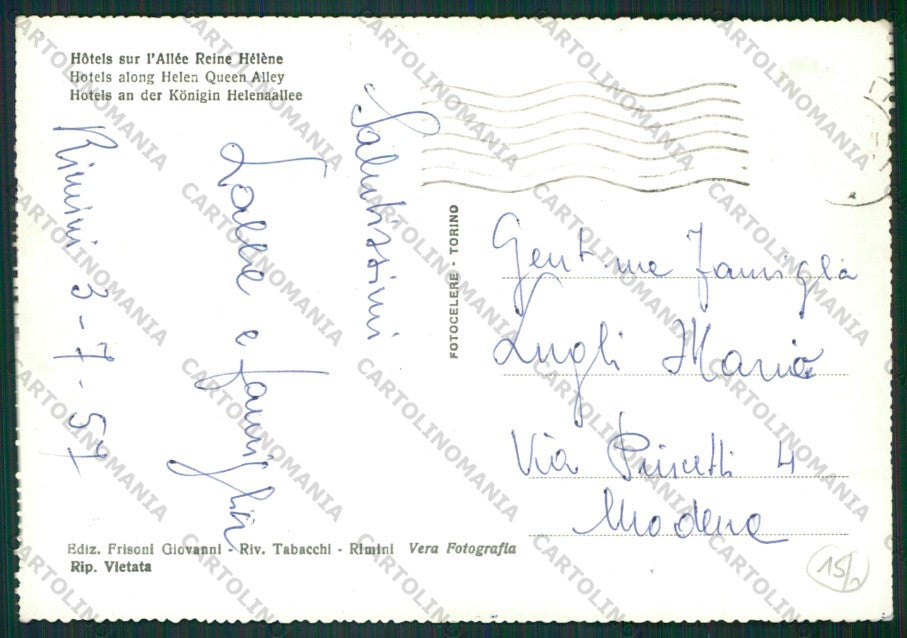 Hôtels sur l'Allée Reine Hélène
Hotels along Helen Queen Alley
Hotels an der Königin Helenaallee
Rimini 3-7-57
Salutissimi
e famiglia
FOTOCELERE - TORINO
Gent.me famiglia
Lugli Maria
Via 4
Modena
Ediz. Frisoni Giovanni - Riv. Tabacchi - Rimini Vera Fotografia
Rip. Vietata
CARTOLINOMANIA